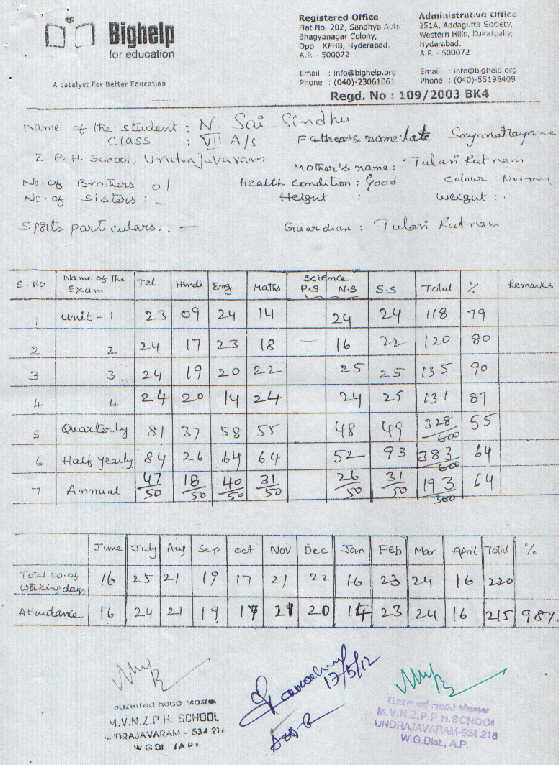 Bighelp
for education
A catalyst For Better Education
Registered Office
Flat No. 202, Sandhya Apts
Bhagyanagar Colony,
Opp KPHB, Hyderabad.
A.P. - 500072
Email : info@bighelp.org
Phone : (040)-23061061
Administrative Office
Western Hills, Kukatpally,
Hyderabad.
A.P. - 500072
Email : info@bighelp.org
Phone : (040)-55199409
Regd. No : 109/2003 BK4
Name of the student : N Sai Sindhu
Class : VII A/s
Father's name: late
Z. P. H. School, Undrajavaram
Mother's name: Tulasi Ratnam
No. of Brothers 01
Health condition : Good
Colour Normal
No. of Sisters : -
Height :
Weight : .
Sports particulars : -
Guardian : Tulasi Ratnam
S. No Name of the Exam Tel Hindi Eng Maths Science P.S N.S S.S Total % Remarks
1 Unit - 1 23 09 24 14 24 24 118 79
2 2 24 17 23 18 - 16 22 120 80
3 3 24 19 20 22 25 25 135 90
4 4 24 20 14 24 24 25 131 87
5 Quarterly 81 37 58 55 48 49 328/600 55
6 Half yearly 84 26 64 64 52 93 383/600 64
7 Annual 47/50 18/50 40/50 31/50 26/50 31/50 193/300 64
June July Aug Sep oct Nov Dec Jan Feb Mar April Total %
Total no. of working days 16 25 21 19 17 21 22 16 23 24 16 220
Attendance 16 24 21 19 17 21 20 14 23 24 16 215 98%
17/5/12
M.V.N.Z.P.H. SCHOOL
UNDRAJAVARAM - 534 216
W.G. Dt. (A.P.)
M.V.N.Z.P.P.H. SCHOOL
UNDRAJAVARAM-534 216
W.G.Dist., A.P.